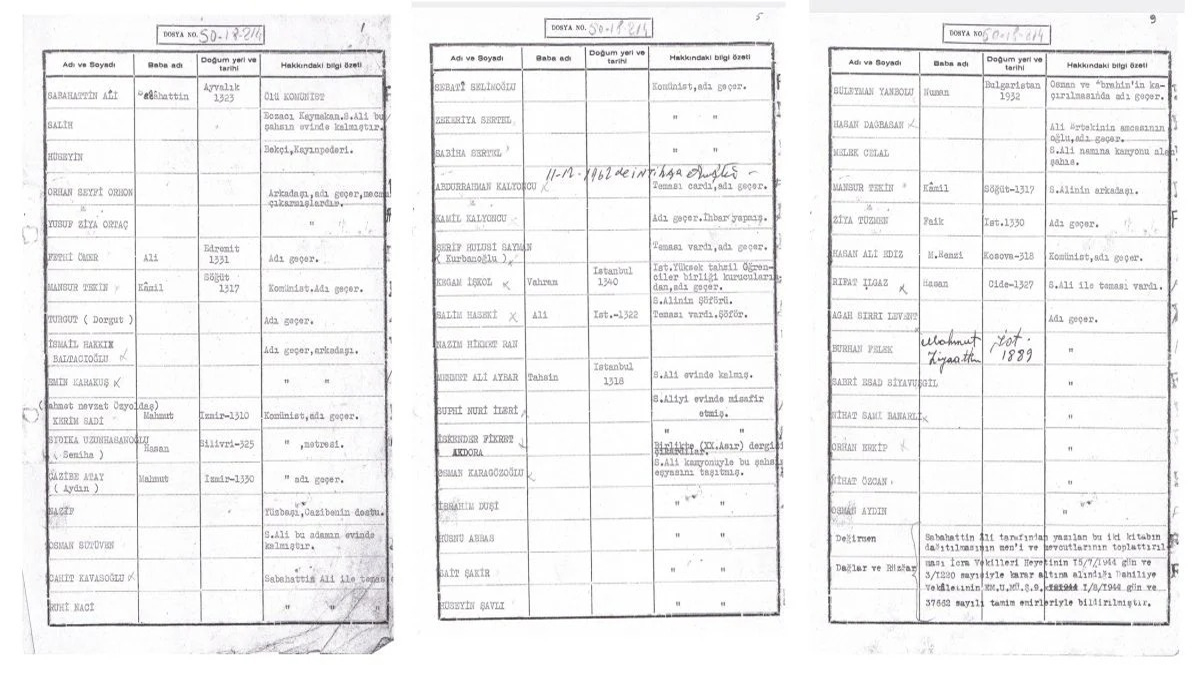 1
DOSYA NO. 50-18-214
Adı ve Soyadı Baba adı Doğum yeri ve tarihi Hakkındaki bilgi özeti
SABAHATTİN ALİ Ayvalık 1323 Ölü KOMÜNİST
SALİH Eczacı Kaynakan.S.Ali bu şahsın evinde kalmıştır.
HÜSEYİN Bekçi,Kayınpederi.
ORHAN SEYFİ ORHON Arkadaşı,adı geçer,mecmua çıkarmışlardır.
YUSUF ZİYA ORTAÇ "
FETHİ ÖMER Ali Edremit 1331 Adı geçer.
MANSUR TEKİN Kâmil Söğüt 1317 Komünist.Adı geçer.
TURGUT ( Dorgut ) Adı geçer.
İSMAİL HAKKIN BALTACIOĞLU Adı geçer,arkadaşı.
EMİN KARAKUŞ " "
(Ahmet nevzat Özyoldaş)
KERİM SADİ Mahmut İzmir-1310 Komünist,adı geçer.
SIDIKA UZUNHASANOĞLU ( Semiha ) Hasan Silivri-325 " ,metresi.
CAZİBE ATAY ( Aydın ) Mahmut İzmir-1330 " adı geçer.
NAZİF Yüzbaşı,Cazibenin dostu.
OSMAN SÜTÜVEN S.Ali bu adamın evinde kalmıştır.
CAHİT KAVASOĞLU Sabahattin Ali ile temas
RUHİ NACİ " "
5
DOSYA NO. 50-18-214
Adı ve Soyadı Baba adı Doğum yeri ve tarihi Hakkındaki bilgi özeti
SEBATİ SELİMOĞLU Komünist,adı geçer.
ZEKERİYA SERTEL " "
SABİHA SERTEL " "
11-12-1962 de intihar etmiştir
ABDURRAHMAN KALYONCU Teması vardı,adı geçer.
KAMİL KALYONCU Adı geçer.İhbar yapmış.
ŞERİF HULUSİ SAYMAN ( Kurbanoğlu ) Teması vardı,adı geçer.
KEGAM İŞKOL Vahram İstanbul 1340 İst.Yüksek tahsil Öğrenciler birliği kurucularından,adı geçer.
SALİM HASEKİ Ali İst.-1322 S.Alinin Şöförü. Teması vardı.Şöför.
NAZIM HİKMET RAN
MEHMET ALİ AYBAR Tahsin İstanbul 1318 S.Ali evinde kalmış.
SUPHİ NURİ İLERİ S.Aliyi evinde misafir etmiş.
İSKENDER FİKRET AKDORA " " Birlikte (XX.Asır) dergi çıkardılar.
OSMAN KARAGÖZOĞLU S.Ali kamyonuyle bu şahs eşyasını taşıtmış.
İBRAHİM DUŞİ " "
HÜSNÜ ABBAS " "
SAİT ŞAKİR " "
HÜSEYİN ŞAVLI " "
9
DOSYA NO. 50-18-214
Adı ve Soyadı Baba adı Doğum yeri ve tarihi Hakkındaki bilgi özeti
SÜLEYMAN YANBOLU Numan Bulgaristan 1932 Osman ve İbrahim'in kaçırılmasında adı geçer.
HASAN DAĞBASAN Ali Ertekinin amcasının oğlu,adı geçer.
MELEK CELAL S.Ali namına kamyonu alan şahıs.
MANSUR TEKİN Kâmil Söğüt-1317 S.Alinin arkadaşı.
ZİYA TÜZMEN Faik İst.1330 Adı geçer.
HASAN ALİ EDİZ M.Remzi Kosova-318 Komünist,adı geçer.
RIFAT ILGAZ Hasan Cide-1327 S.Ali ile teması vardı.
AGAH SIRRI LEVENT Adı geçer.
BURHAN FELEK Mahmut Ziyaettin İst. 1889 "
SABRİ ESAD SİYAVUŞGİL "
NİHAT SAMİ BANARLI "
ORHAN ERKİP "
NİHAT ÖZCAN "
OSMAN AYDIN "
Değirmen
Dağlar ve Rüzgar
Sabahattin Ali tarafından yazılan bu iki kitabın
dağıtılmasının men'i ve mevcutlarının toplattırıl
ması İcra Vekilleri Heyetinin 15/7/1944 gün ve
3/1220 sayısiyle karar altına alındığı Dahiliye
Vekâletinin EM.U.MÜ.Ş.9. 1/8/1944 gün ve
37662 sayılı tamim emirleriyle bildirilmiştir.